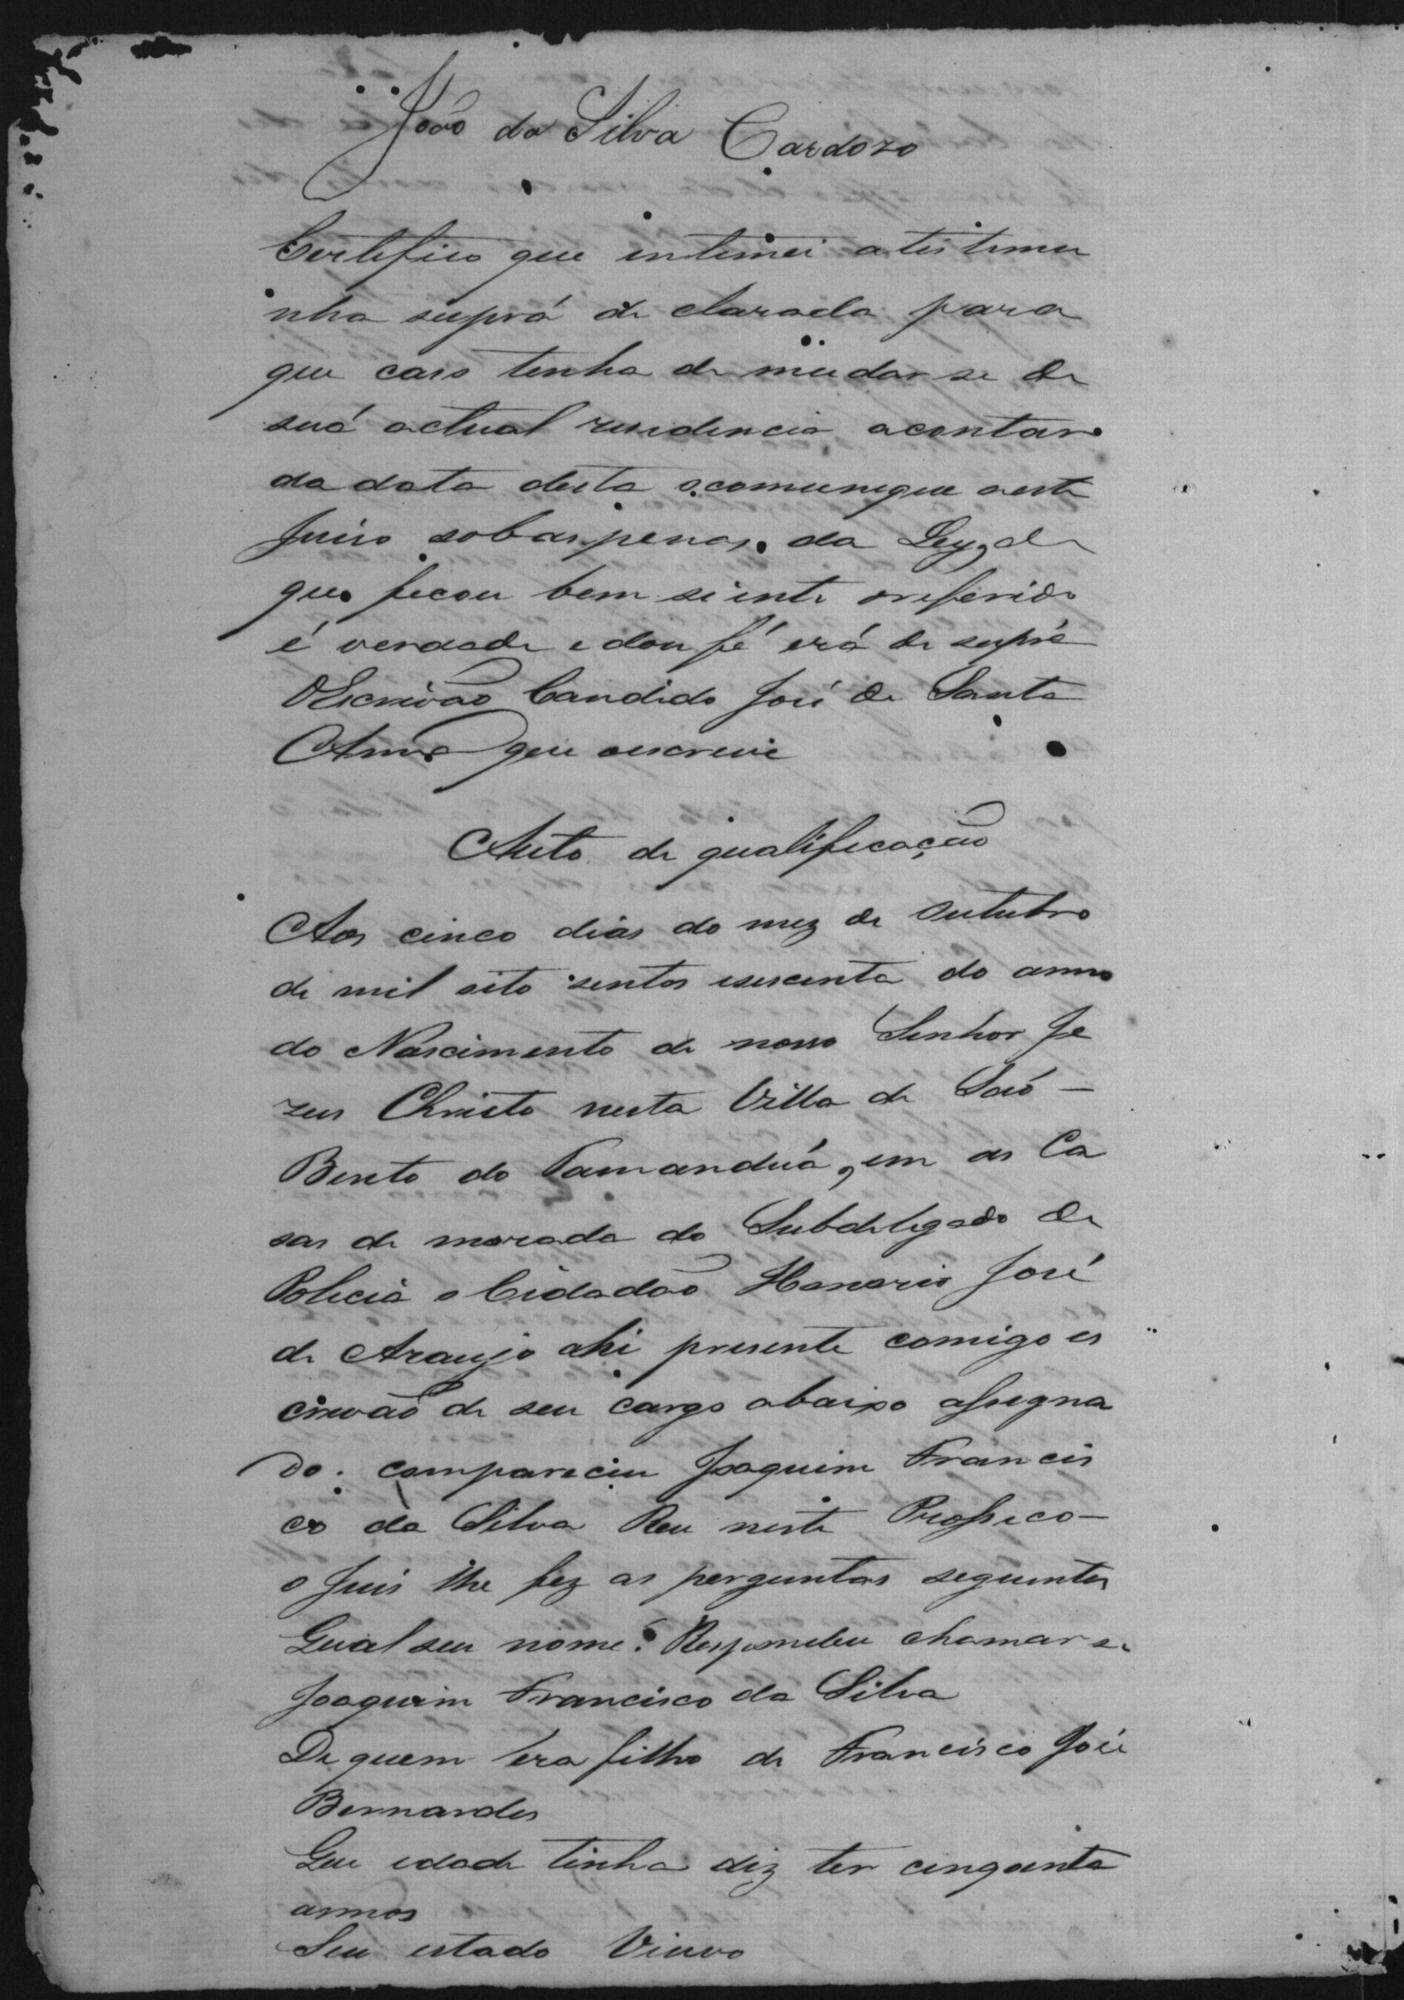 João da Silva Cardozo
Certefico que intimei atestemu
nha suprá de clarada para
que caso tenha de mudar se de
suá actual rezidencia acontar
da data desta ocomunique aeste
Juiso sobas penas da Ley, de
que ficou bem siente oreferido
é verdade edou fé erá de suprá
OEscrivão Candido José de Santa
Anna que oescrevi
Auto de qualificação
Aos cinco dias do mez de Outubro
de mil oito sentos esescenta do anno
do Nascimento de nosso Senhor Je
zus Christo nesta Villa de Saó
Bento do Tamanduá, em as Ca
sas de morada do Subdelegado de
Policia o Cidadão Honorio José
de Araujo ahi presente comigo es
crivaõ de seu cargo abaixo assegna
do. compareceu Joaquim Francis
co da Silva Reu neste Prosseco
o Juis lhe fez as perguntas seguintes
Qual seu nome? Respondeu chamar se
Joaquim Francisco da Silva
De quem era filho de Francisco José
Bernardes
Que edade tinha diz ter cinqoenta
annos
Seu estado Viuvo